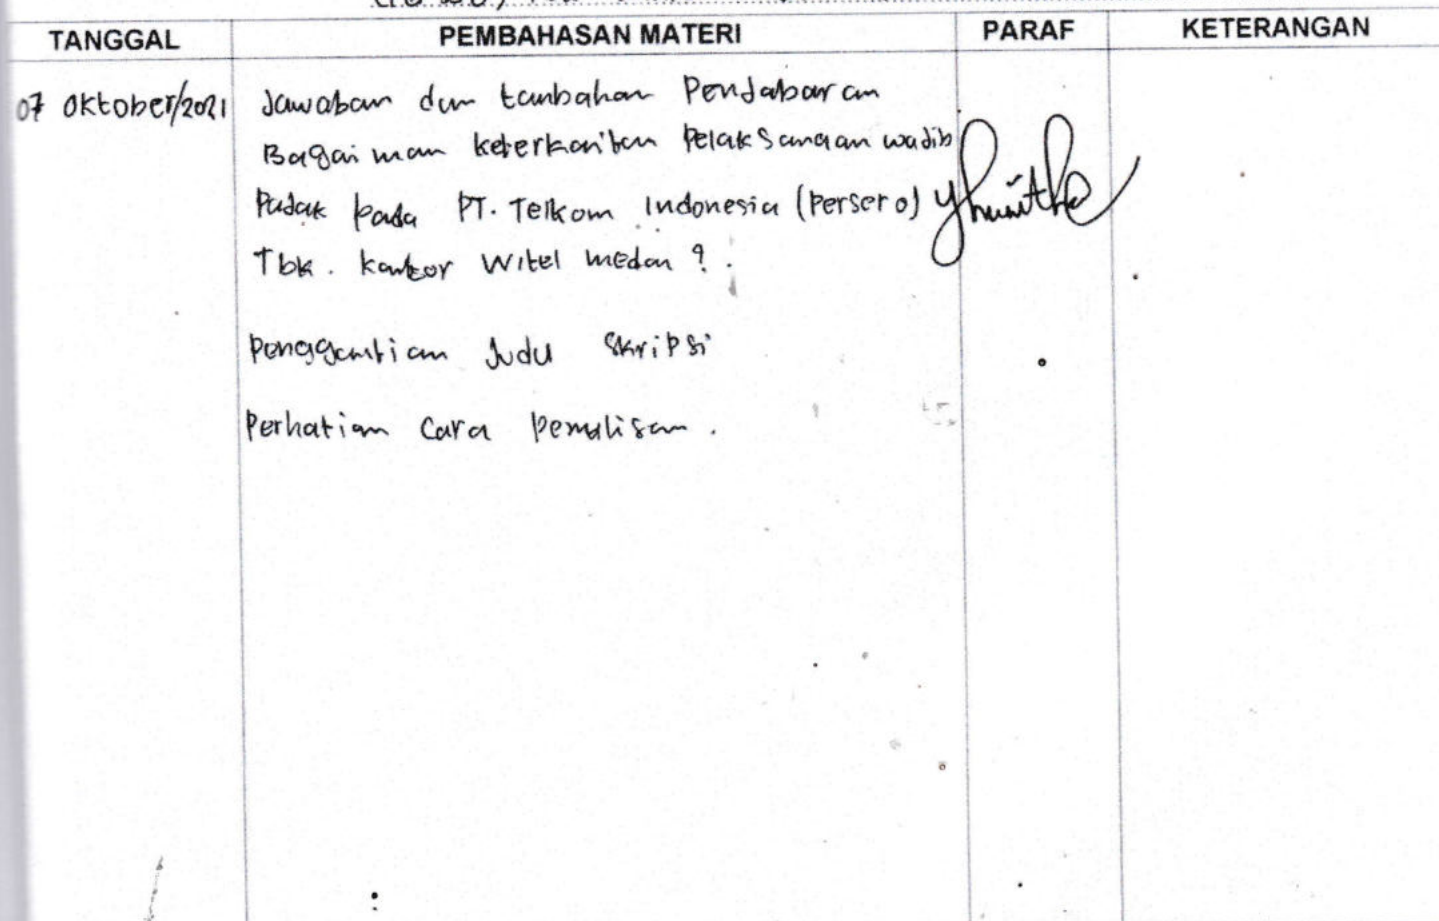 TANGGAL PEMBAHASAN MATERI PARAF KETERANGAN
07 Oktober/2021 Jawaban dan tambahan Penjabaran
Bagaiman keterkaitan Pelaksanaan wajib
Pajak pada PT. Telkom Indonesia (Persero)
Tbk. kantor Witel medan ?.
Penggantian Judu Skripsi
Perhatian Cara Penulisan.